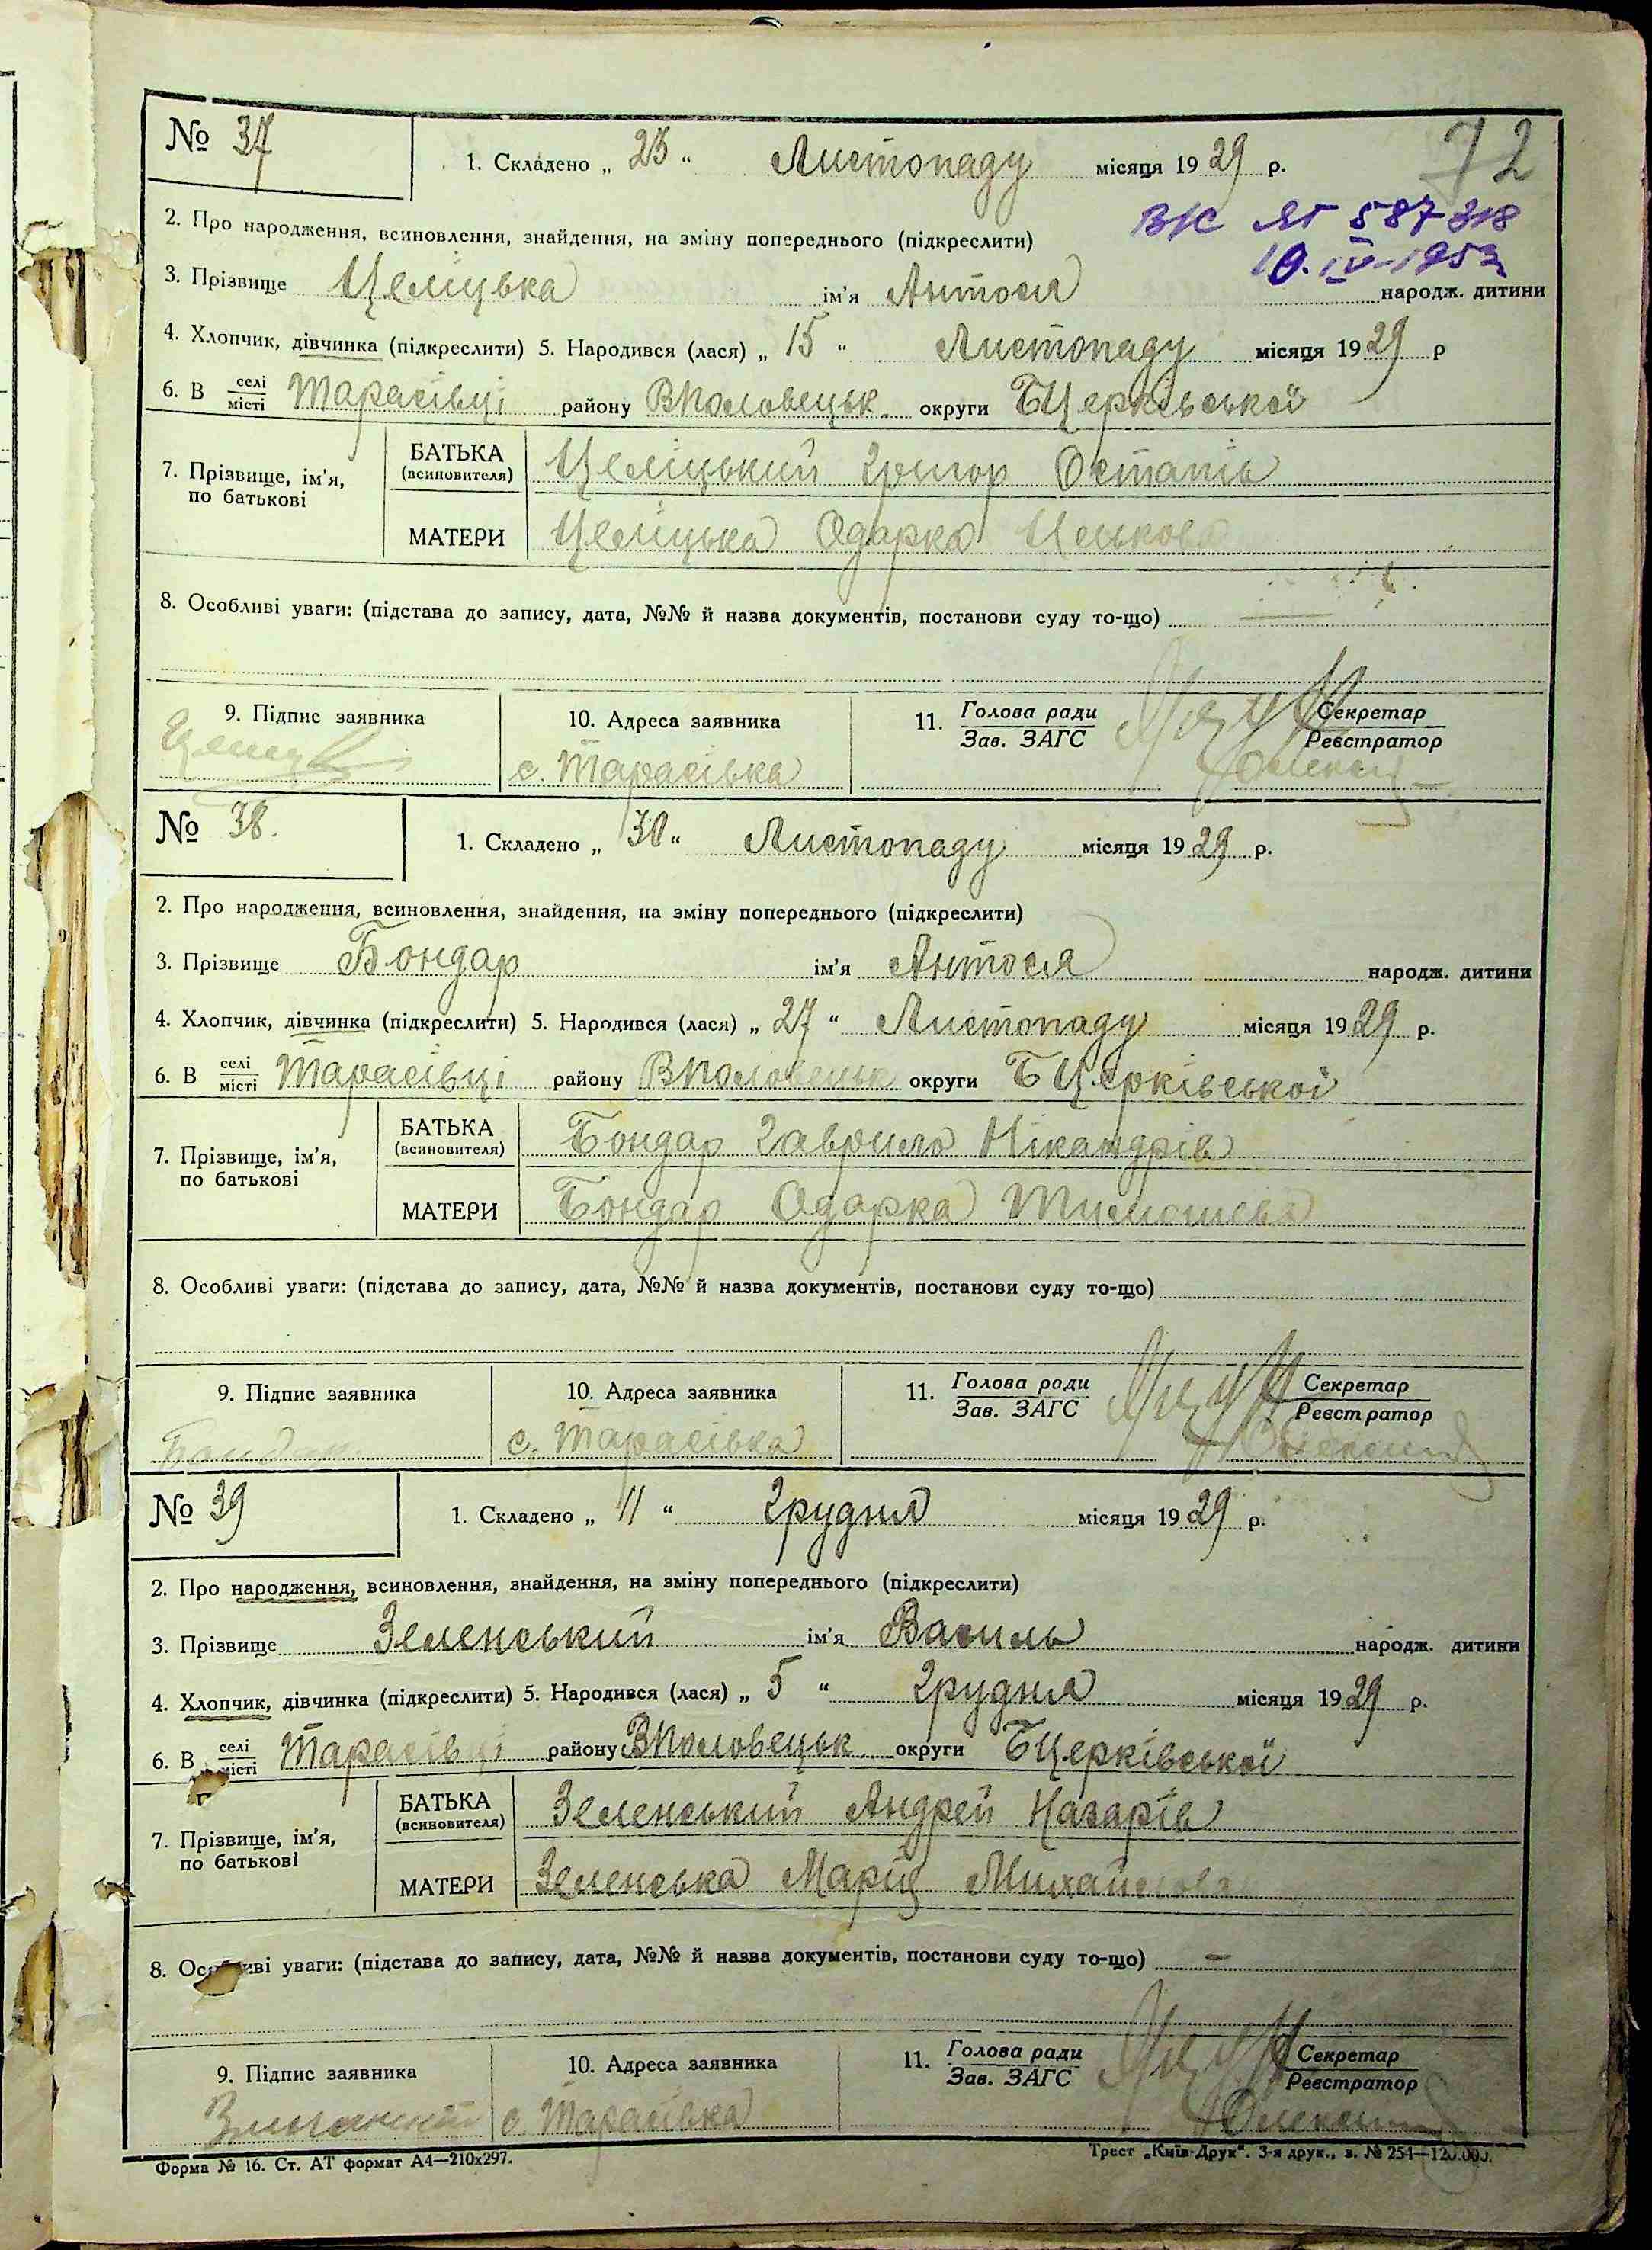 № 37
1. Складено „ 23 “ Листопаду місяця 1929 р.
72
ВК ЯГ 587318
10.IV-1953
2. Про народження, всиновлення, знайдення, на зміну попереднього (підкреслити)
3. Прізвище Целіцька ім’я Антося народж. дитини
4. Хлопчик, дівчинка (підкреслити) 5. Народився (лася) „ 15 “ Листопаду місяця 1929 р
6. В селі/місті Тарасівці району ВПоловецьк. округи БЦерківської
7. Прізвище, ім’я, по батькові
БАТЬКА (всиновителя) Целіцький Григор Остапів
МАТЕРИ Целіцька Одарка
8. Особливі уваги: (підстава до запису, дата, №№ й назва документів, постанови суду то-що)
9. Підпис заявника
10. Адреса заявника
с. Тарасівка
11. Голова ради/Зав. ЗАГС
Секретар/Реєстратор
№ 38.
1. Складено „ 30 “ Листопаду місяця 1929 р.
2. Про народження, всиновлення, знайдення, на зміну попереднього (підкреслити)
3. Прізвище Бондар ім’я Антося народж. дитини
4. Хлопчик, дівчинка (підкреслити) 5. Народився (лася) „ 27 “ Листопаду місяця 1929 р.
6. В селі/місті Тарасівці району ВПоловецьк округи БЦерківської
7. Прізвище, ім’я, по батькові
БАТЬКА (всиновителя) Бондар Гаврило Нікандрів
МАТЕРИ Бондар Одарка Тимошева
8. Особливі уваги: (підстава до запису, дата, №№ й назва документів, постанови суду то-що)
9. Підпис заявника
Бондар
10. Адреса заявника
с. Тарасівка
11. Голова ради/Зав. ЗАГС
Секретар/Реєстратор
№ 39
1. Складено „ 11 “ Грудня місяця 1929 р.
2. Про народження, всиновлення, знайдення, на зміну попереднього (підкреслити)
3. Прізвище Зеленський ім’я Василь народж. дитини
4. Хлопчик, дівчинка (підкреслити) 5. Народився (лася) „ 5 “ Грудня місяця 1929 р.
6. В селі/місті Тарасівці району ВПоловецьк округи БЦерківської
7. Прізвище, ім’я, по батькові
БАТЬКА (всиновителя) Зеленський Андрей Назарів
МАТЕРИ Зеленська Марія Михайлова
8. Особливі уваги: (підстава до запису, дата, №№ й назва документів, постанови суду то-що) —
9. Підпис заявника
10. Адреса заявника
с. Тарасівка
11. Голова ради/Зав. ЗАГС
Секретар/Реєстратор
Форма № 16. Ст. АТ формат А4—210x297.
Трест „Київ-Друк“. 3-я друк., з. № 254—120.000.